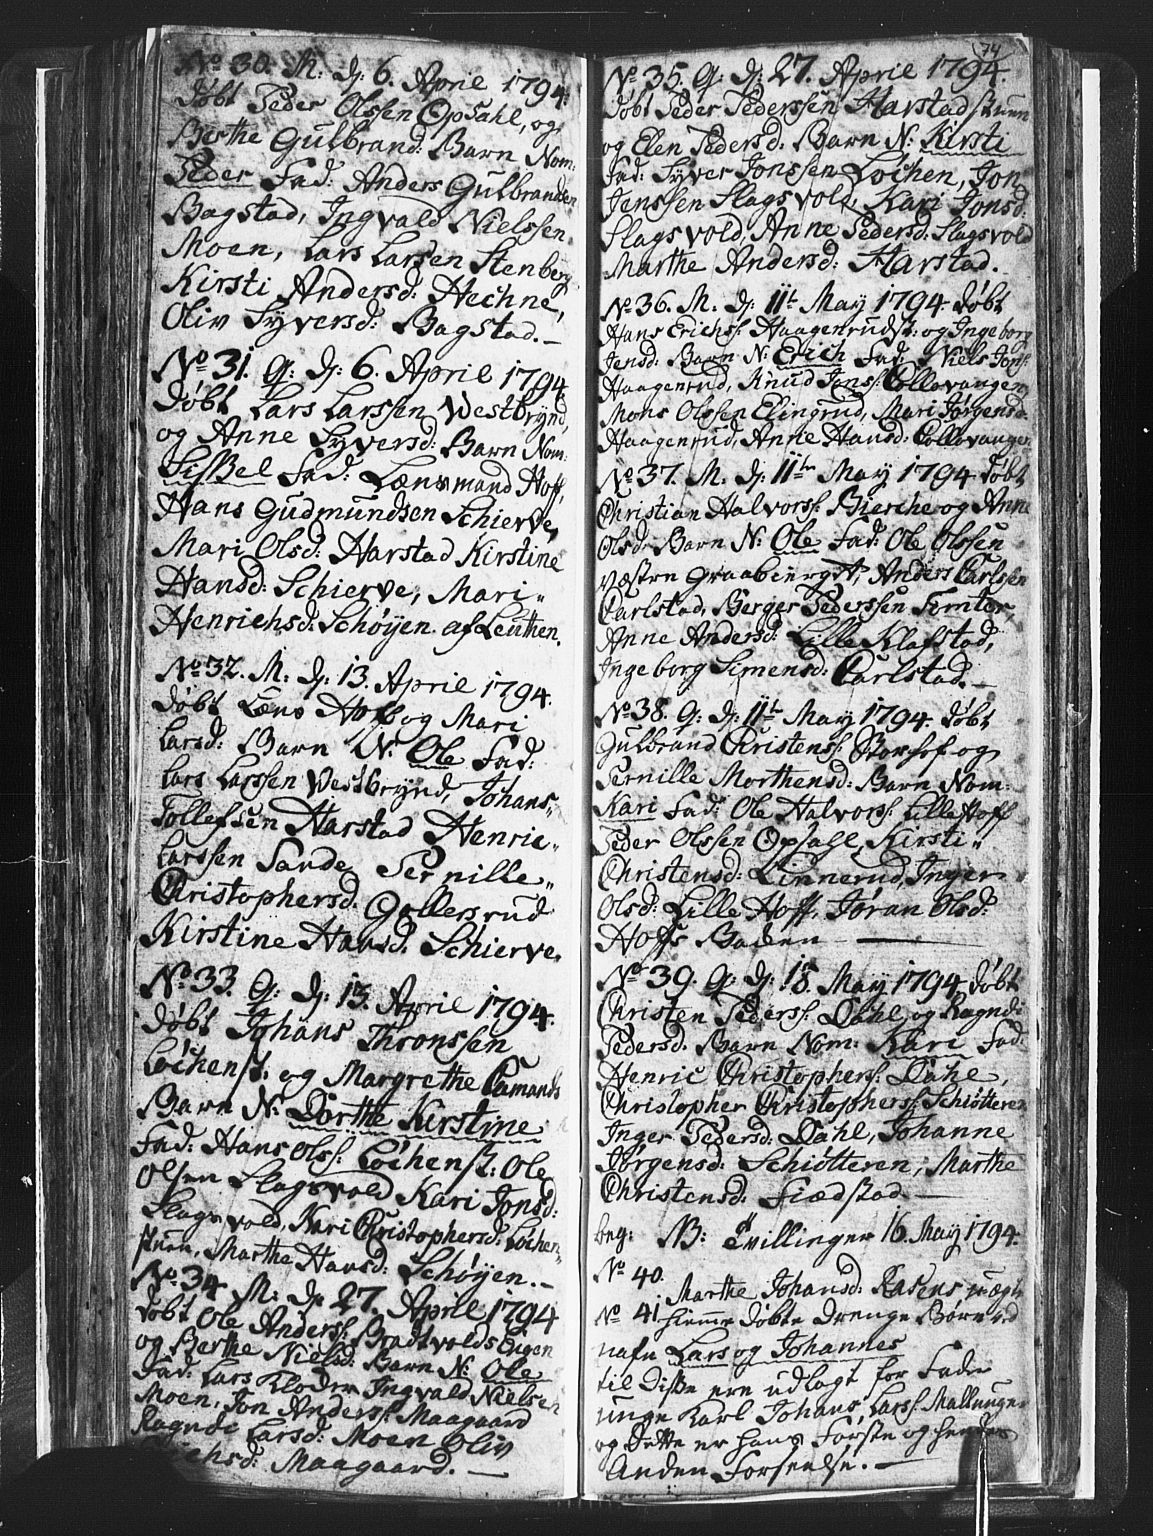 No 30. M: D: 6. April 1794.
Døbt Peder Olssen Opsahl, og
Berthe Gulbrand: Barn Nom:
Peder Fad: Anders Gulbrandsen
Bagstad, Ingvald Nielssen
Moen, Lars Larsen Stenberg
Kirsti Andersd: Hechne,
Oliv Syversd: Bagstad. —
No 31. G: D: 6. April 1794
Døbt Lars Larssen Vestbrynd,
og Anne Syversd: Barn Nom:
Sissel Fad: Lænsmand Hoff,
Hans Gudmundsen Schierve,
Mari Olsd: Harstad Kirstine
Hansd: Schierve, Mari
Henrichsd: Schøyen af Leuthen.
No 32. M: D: 13. April 1794.
Døbt Læns Hoff og Mari
Larsd: Barn N: Ole Fad:
Lars Larssen Vestbrynd, Johans
Tollefsen Harstad Henric
Larssen Sande Pernille
Christophersd: Gollersrud
Kirstine Hansd: Schierve.
No 33. G: D: 13. April 1794.
Døbt Johans Thronssen
Løchenst: og Margrethe Pamands
Barn N: Dorthe Kirstine
Fad: Hans Ols: Løchenst: Ole
Olsen Slagsvold Kari Jonsd:
Slagsvold, Kari Christophersd: Løchen
stuen, Marthe Hansd: Schøyen. —
No 34 M: D: 27. April 1794
Døbt Ole Anders: Bradtvolds Engen
og Berthe Nielsd: Barn N: Ole
Fad: Lars Kloden Ingvald Nielsen
Moen, Jon Anders: Maagaard
Ragnde Larsd: Moen Oliv
Erichsd: Maagaard. —
74
No 35. G: D: 27. April 1794.
Døbt Peder Pederssen Harstadstuen
og Elen Pedersd: Barn N: Kirsti
Fad: Syver Jonssen Løchen, Jon
Jenssen Slagsvold, Kari Jonsd:
Slagsvold, Anne Pedersd: Slagsvold
Marthe Andersd: Harstad.
No 36. M. D: 11te May 1794. Døbt
Hans Erichs: Haagenrudst: og Ingeborg
Jensd: Barn N: Erich Fad: Niels Jons:
Haagenrud, Knud Jons: Collovangen
Mons Olssen Elingrud, Mari Jørgensd:
Haagenrud, Anne Hansd: Collovangen
No 37. M. D: 11te May 1794 Døbt
Christian Halvors: Bierche og Anne
Olsd: Barn N: Ole Fad: Ole Olssen
væstre Graabierget, Anders Carlssen
Carlstad, Berger Pederssen Simter,
Anne Andersd: Lille Klafstad,
Ingeborg Simensd: Carlstad. —
No 38. G: D: 11te May 1794. Døbt
Gulbrand Christens: Storhof og
Pernille Morthensd: Barn Nom:
Kari Fad: Ole Halvors: Lille Hoff
Peder Olssen Opsahl, Kirsti
Christensd: Linnerud, Inger
Olsd: Lille Hoff, Jøran Olsd:
Hoffs Baden —
No 39. G. D: 18. May 1794 Døbt
Christen Peders: Dahl og Ragndi
Pedersd: Barn Nom: Kari Fad:
Henric Christophers: Dahle,
Christopher Christophers: Schiøtteren
Inger Pedersd: Dahl, Johanne
Jørgensd: Schiøtteren, Marthe
Christensd: Fiædstad —
beg: NB: Tvillinger 16. May 1794.
No 40.
Marthe Johansd: Rasens uægte
No 41 hiemme døbte Drenge Børn ved
nafn Lars og Johannes
til Disse ere udlagt for Fader
unge Karl Johans Lars: Mallunger
og Dette er hans Første og hendes
Anden Forseelse. —